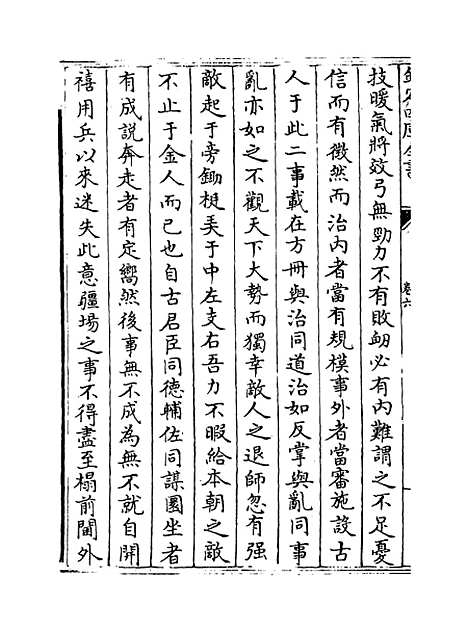 欽定四庫全書
卷六
技暖氣將效弓無勁力不有敗衂必有内難謂之不足憂
信而有徴然而治内者當有規模事外者當審施設古
人于此二事載在方冊與治同道治如反掌與亂同事
亂亦如之不觀天下大勢而獨幸敵人之退師忽有强
敵起于旁鋤梃秉于中左支右吾力不暇給本朝之敵
不止于金人而已也自古君臣同德輔佐同謀圜坐者
有成説奔走者有定嚮然後事無不成為無不就自開
禧用兵以來迷失此意疆場之事不得盡至榻前閫外